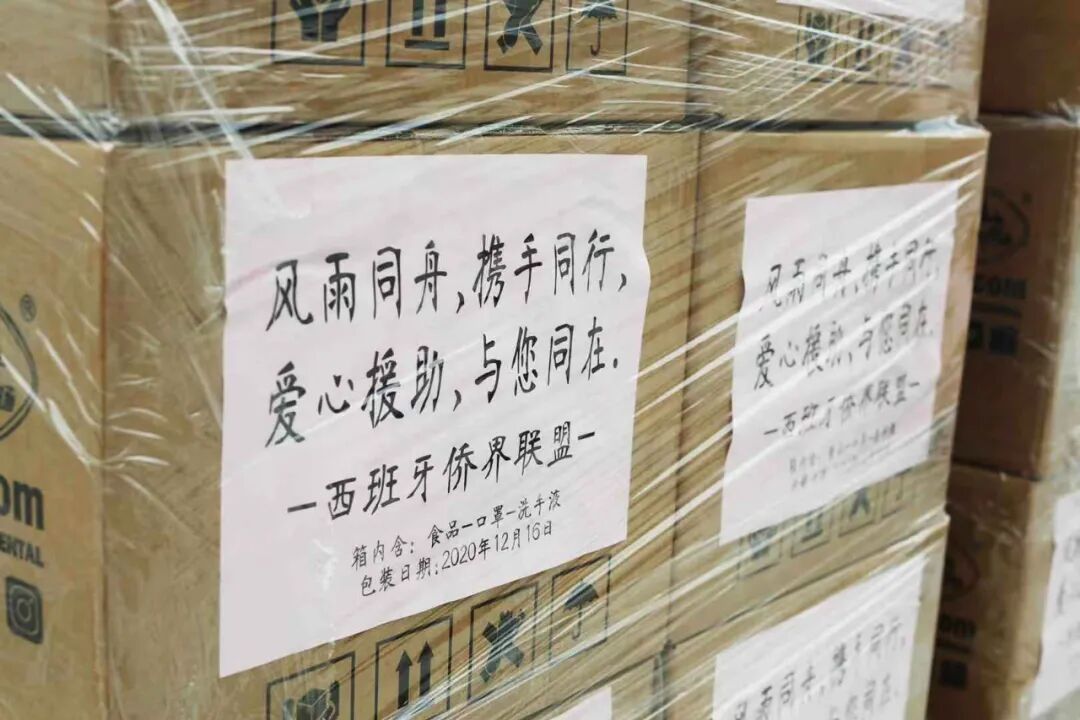 风雨同舟,携手同行,
爱心援助,与您同在.
—西班牙侨界联盟—
箱内含：食品—口罩—洗手液
包装日期:2020年12月16日
风雨同舟,携手同行,
爱心援助,与您同在.
—西班牙侨界联盟—
®
com
ENTAL
com
com
风雨同舟,携手同行,